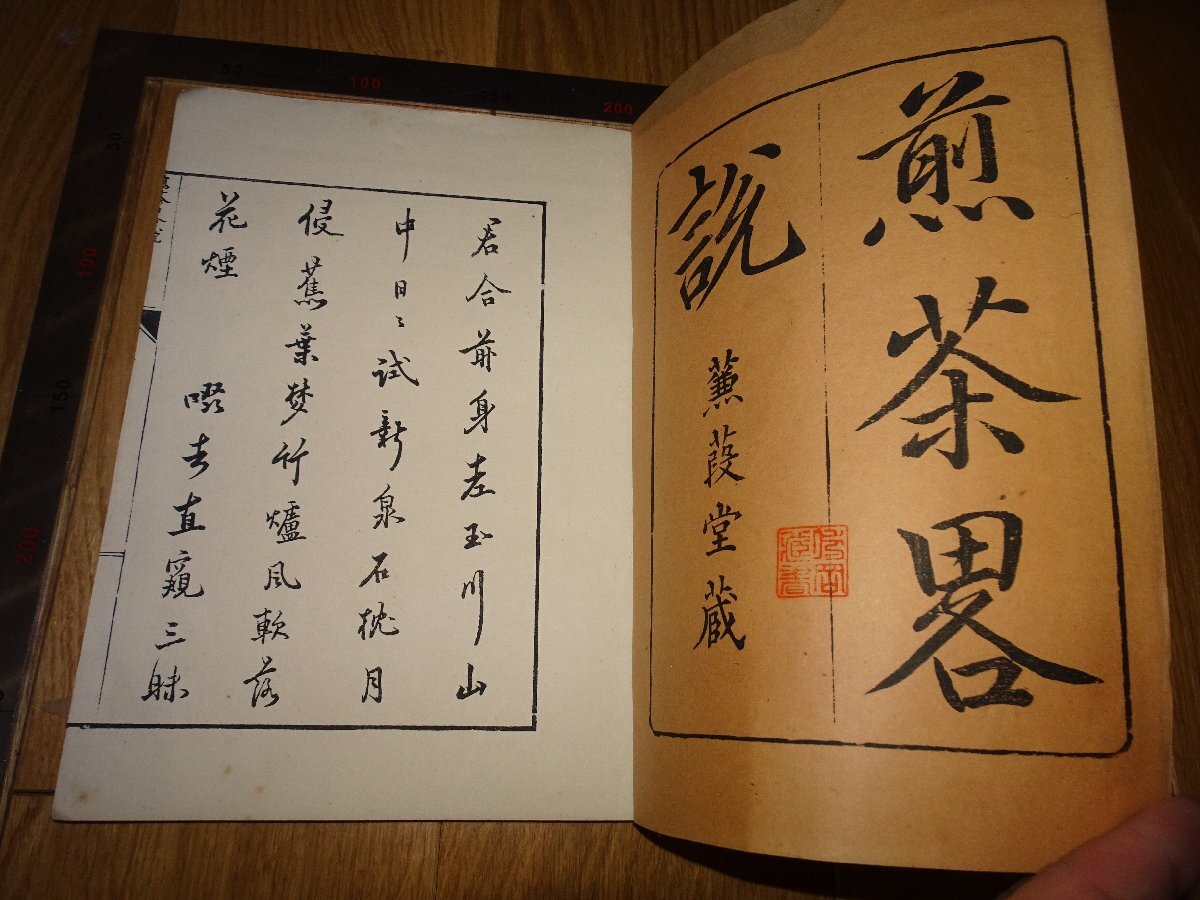 煎茶畧
説
蒹葭堂蔵
君合前身老玉川山
中日〻試新泉石枕月
侵蕉葉梦竹爐風軟落
花煙
啜去直窺三昧
50
100
150
200
50
100
150
200